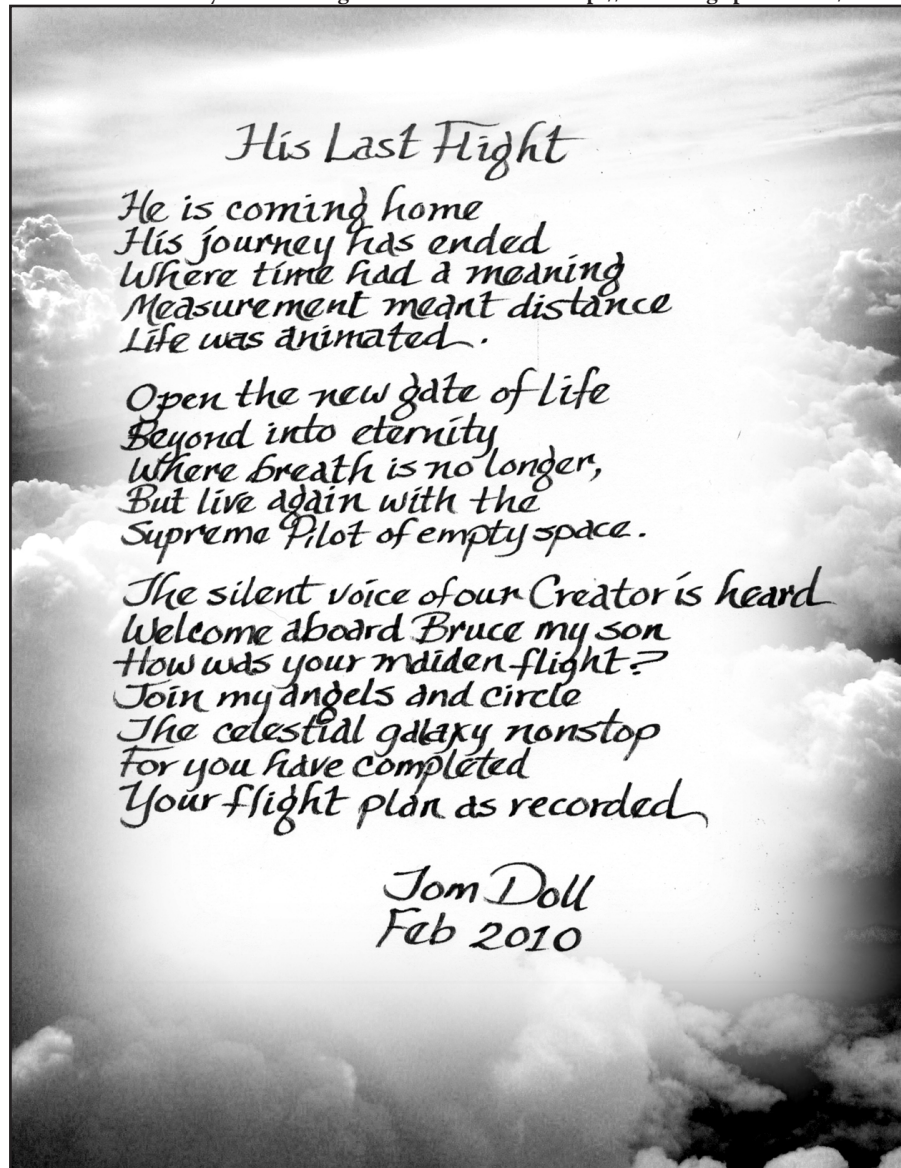 His Last Flight
He is coming home
His journey has ended
Where time had a meaning
Measurement meant distance
Life was animated.
Open the new gate of life
Beyond into eternity
Where breath is no longer,
But live again with the
Supreme Pilot of empty space.
The silent voice of our Creator is heard
Welcome aboard Bruce my son
How was your maiden flight?
Join my angels and circle
The celestial galaxy nonstop
For you have completed
Your flight plan as recorded
Tom Doll
Feb 2010